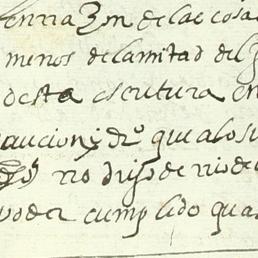 en rrazon de las cosa
menos de la mitad del
desta escritura en
caucion y dro que a los
no dijo de rio de
poder cumplido qua